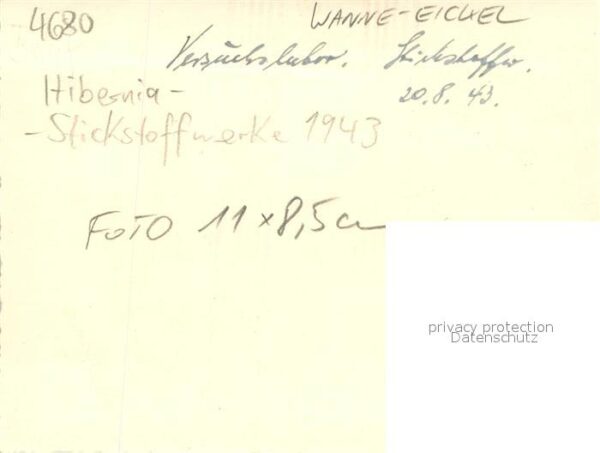 4680
WANNE-EICKEL
Versuchslabor. Stickstoffw.
20.8.43.
Hibernia-
-Stickstoffwerke 1943
FOTO 11x8,5cm
privacy protection
Datenschutz